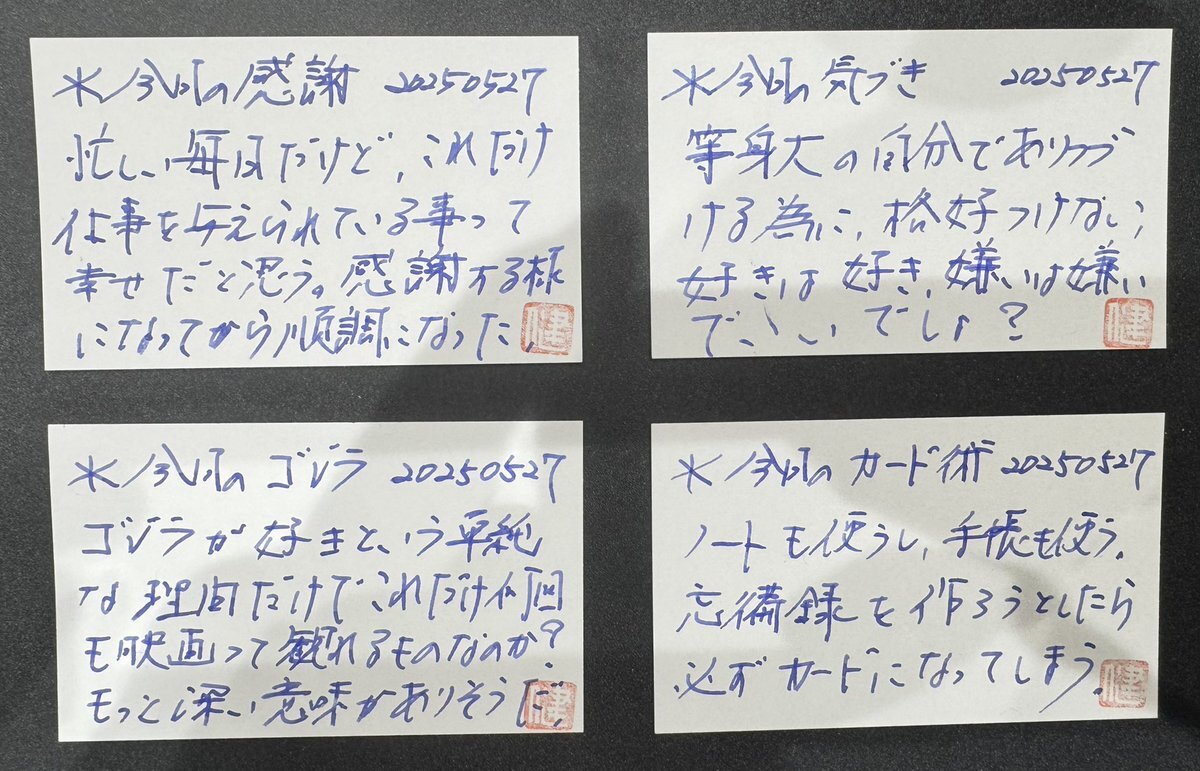 ※今朝の感謝 20250527
忙しい毎日だけど、これだけ
仕事を与えられている事って
幸せだと思う。感謝する様
になってから順調になった。
健
※今朝の気づき 20250527
等身大の自分でありつづ
ける為に、格好つけない、
好きは好き、嫌いは嫌い
でいいでしょ?
健
※今朝のゴジラ 20250527
ゴジラが好きという単純
な理由だけでこれだけ何回
も映画って観れるものなのか?
もっと深い意味がありそうだ。
健
※今朝のカード術 20250527
ノートも使うし、手帳も使う。
忘備録を作ろうとしたら
必ずカードになってしまう。
健